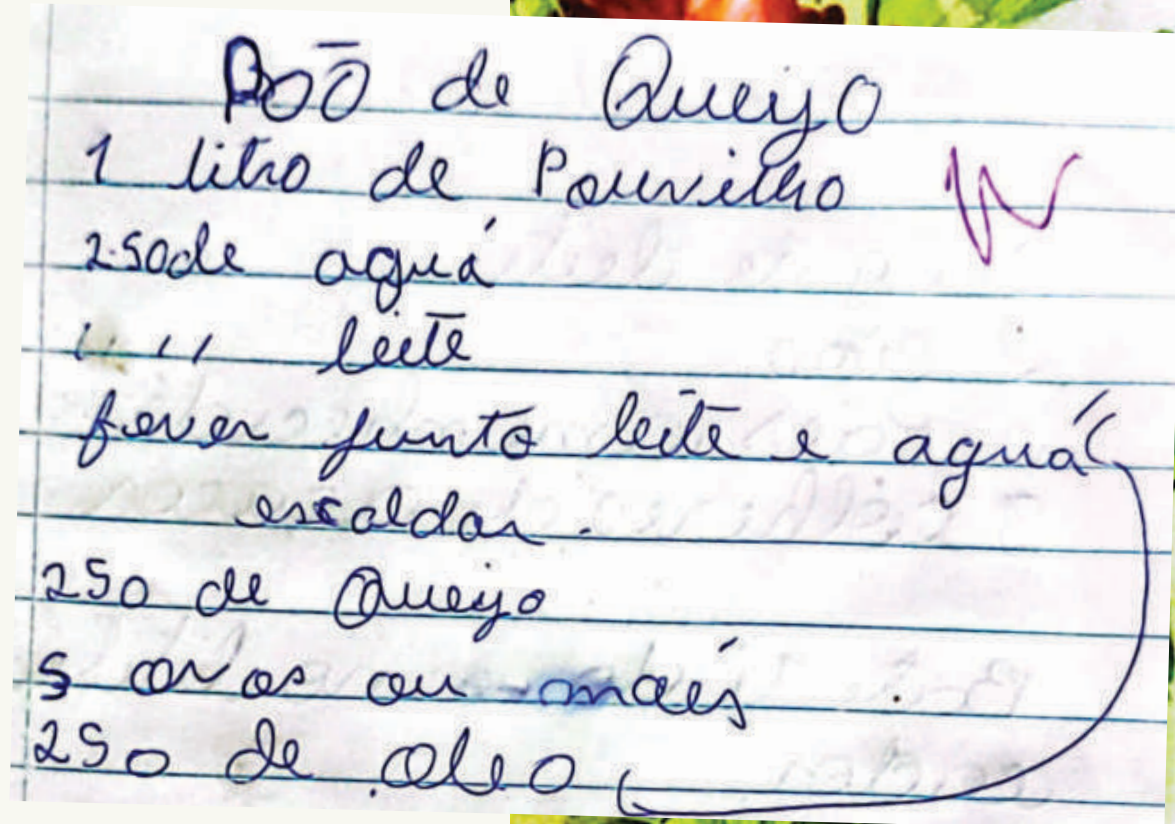 Pão de Queijo
1 litro de Pouvilho
250 de aguá
" " leite
fever junto leite e aguá
escaldar.
250 de Queijo
5 ovos ou maís
250 de oleo